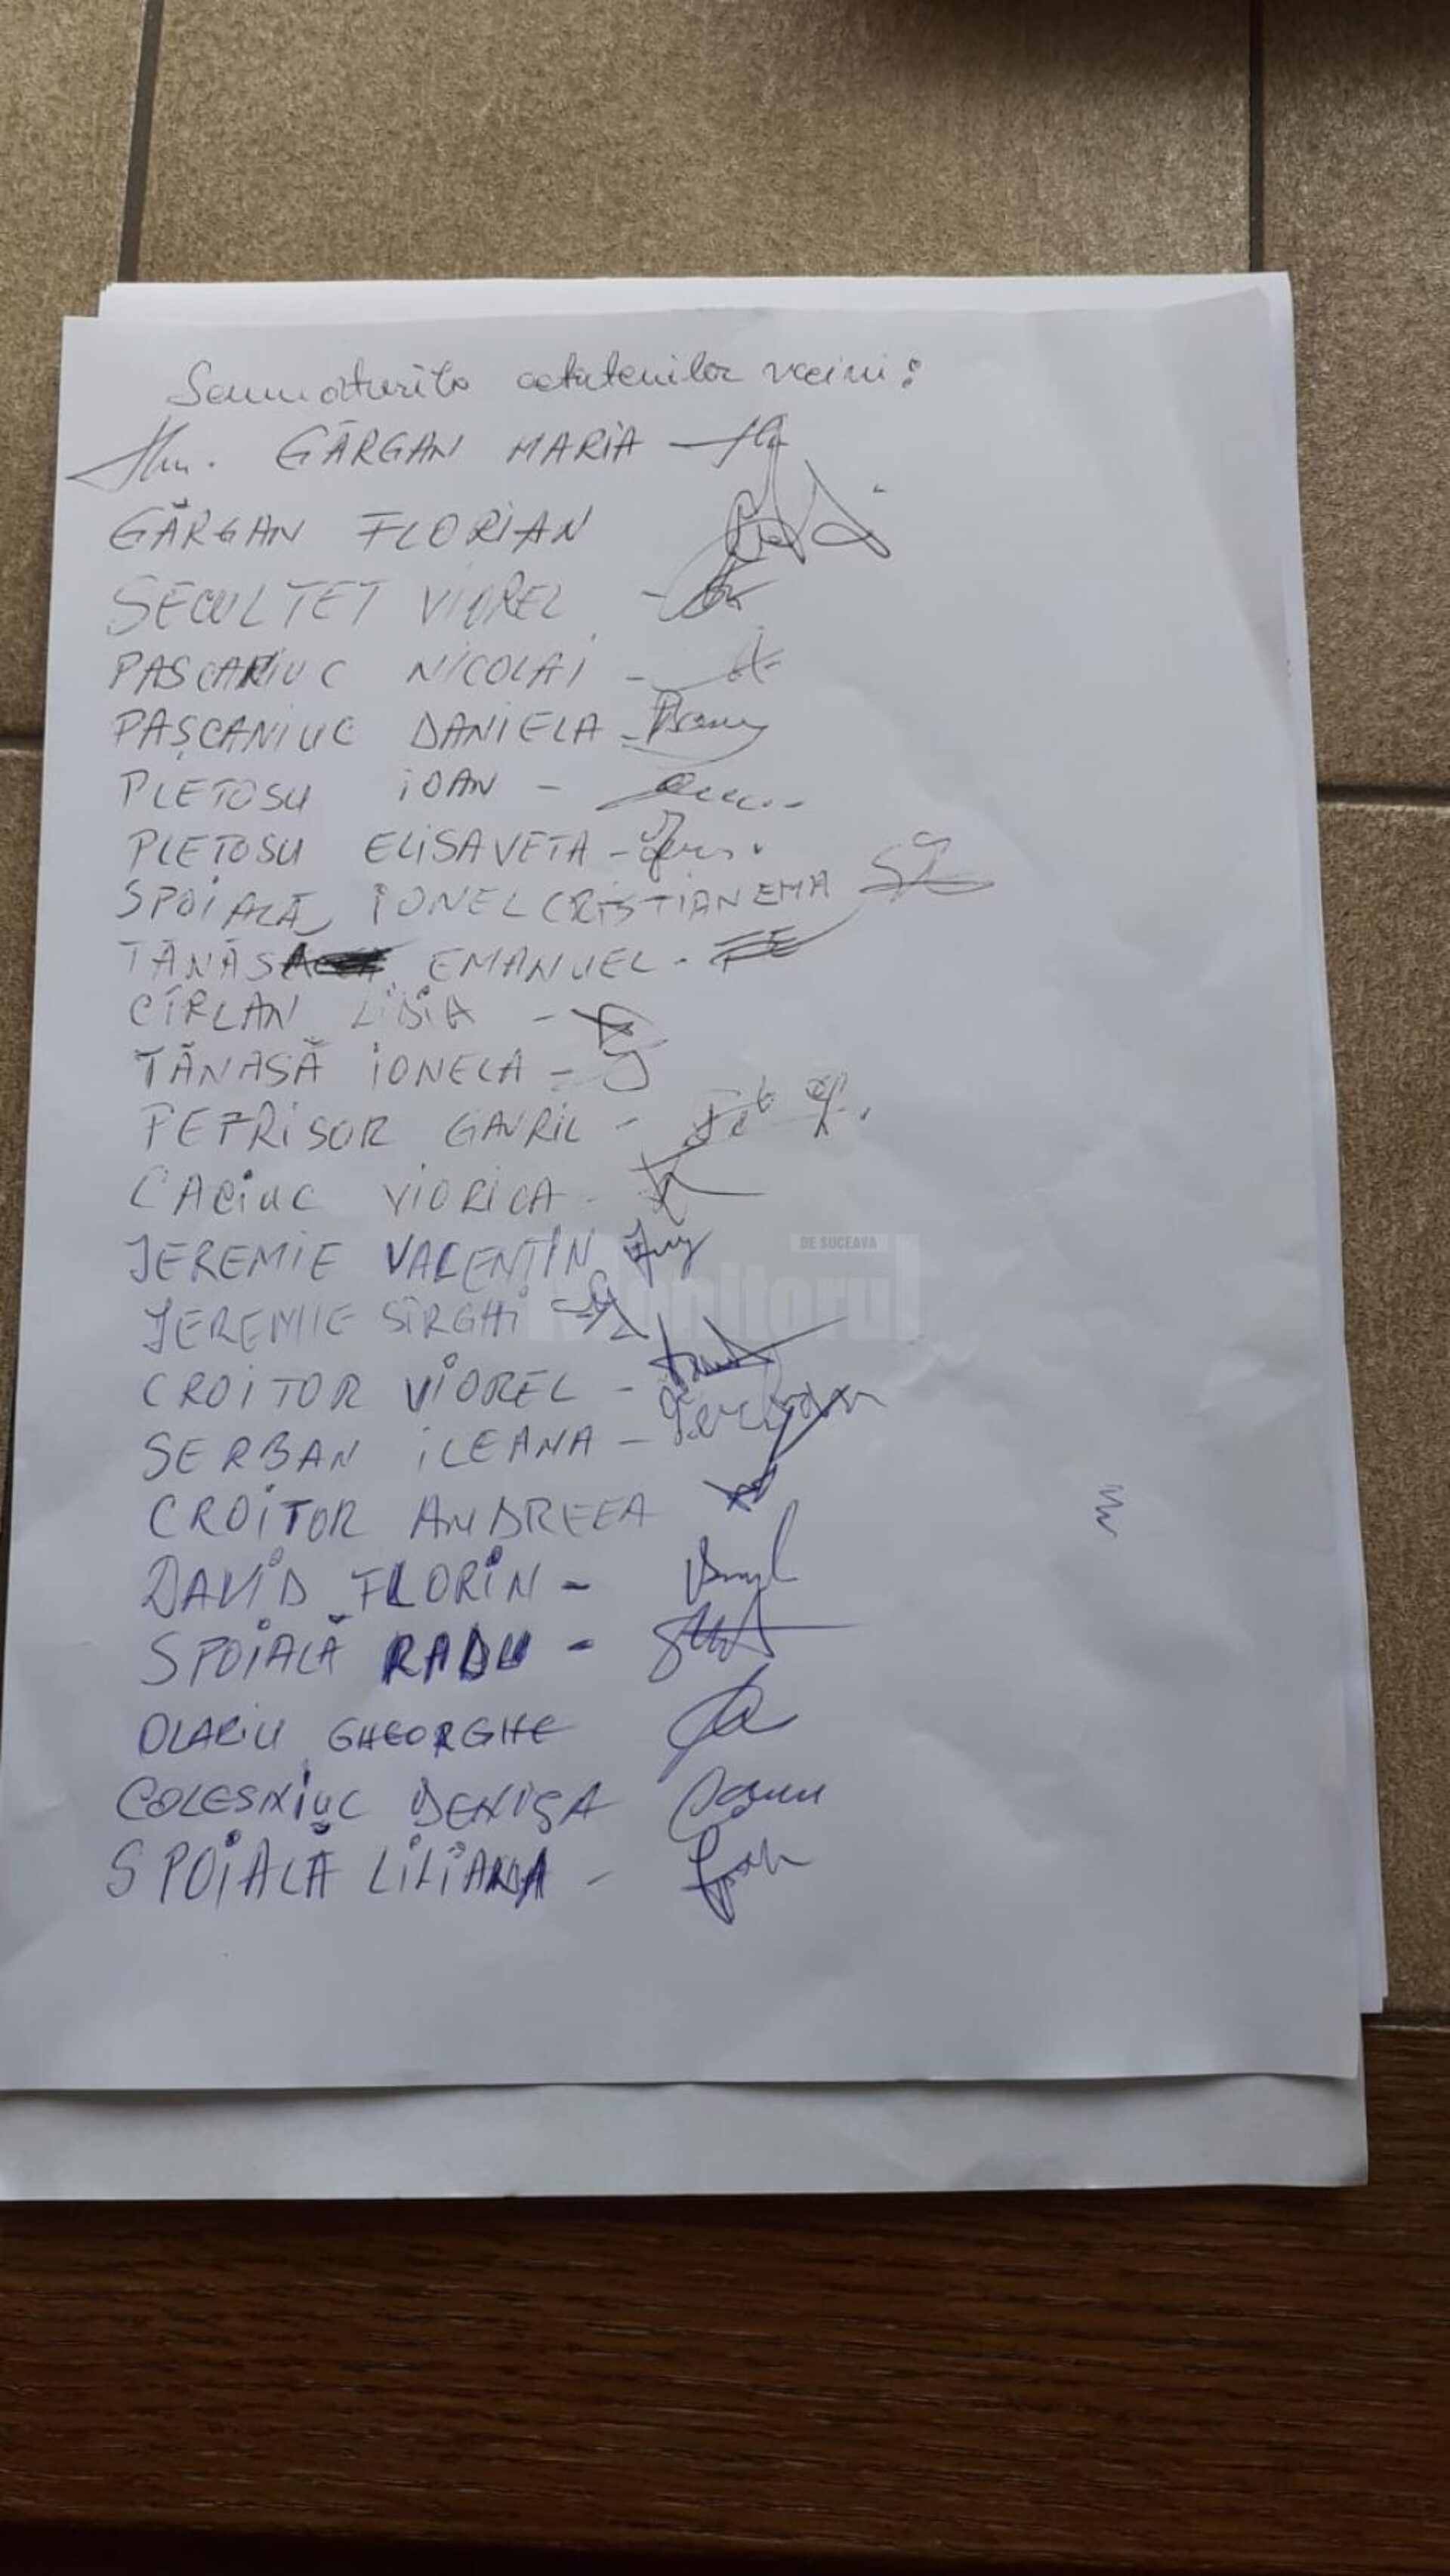 Semnăturile cetățenilor vecini:
GĂRGAN MARIA
GĂRGAN FLORIAN
SECULTET VIOREL
PASCARIUC NICOLAI
PAȘCANIUC DANIELA
PLETOSU IOAN -
PLETOSU ELISAVETA -
SPOIALĂ IONEL CRISTIAN EMA
TĂNĂSA EMANUEL -
CÎRLAN LIDIA -
TĂNASĂ IONELA -
PETRISOR GAVRIL -
CACIUC VIORICA -
JEREMIE VALENTIN
JEREMIE SÎRGHI
DE SUCEAVA
Monitorul
CROITOR VIOREL -
SERBAN ILEANA -
CROITOR ANDREEA
DAVID FLORIN -
SPOIALĂ RADU -
OLARIU GHEORGHE
COLESNIUC DENISA
SPOIALĂ LILIANA -